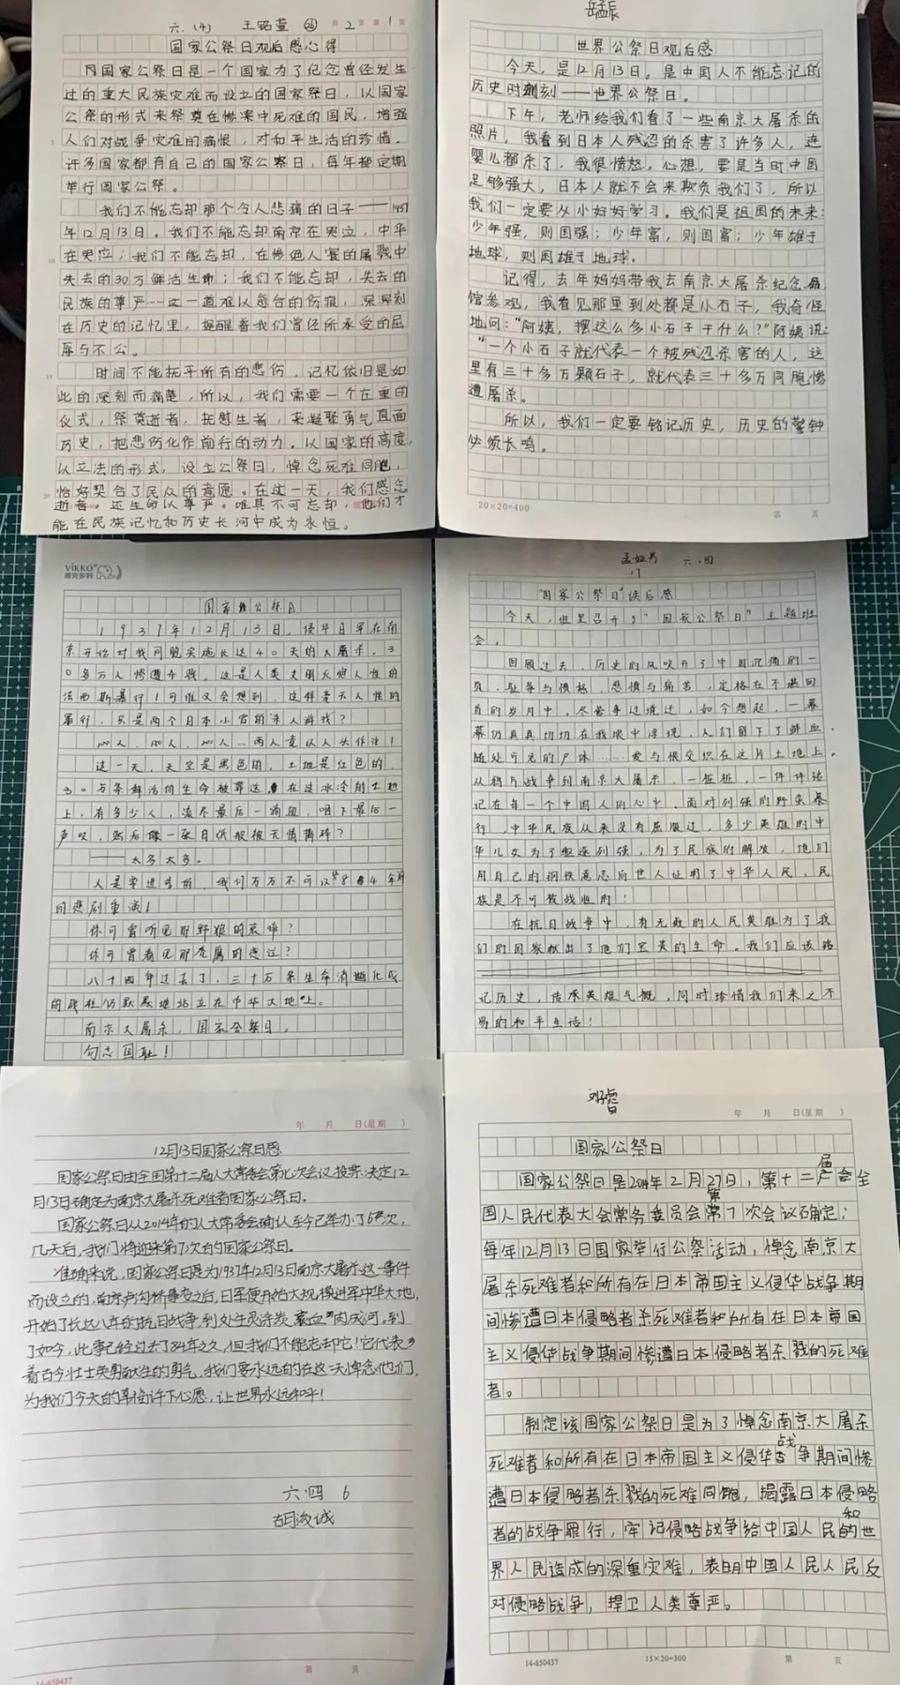 六.(4) 王铭萱
2 1
国家公祭日观后感心得
国家公祭日是一个国家为了纪念曾经发生
过的重大民族灾难而设立的国家祭日，以国家
公祭的形式来祭奠在惨案中死难的国民，增强
人们对战争灾难的痛恨，对和平生活的珍惜。
许多国家都有自己的国家公祭日，每年都定期
举行国家公祭。
我们不能忘却那个令人悲痛的日子——1937
年12月13日。我们不能忘却南京在哭泣，中华
在哭泣；我们不能忘却，在惨绝人寰的屠戮中
失去的30万鲜活生命；我们不能忘却，失去的
民族的尊严……这一道难以愈合的伤痕，深深刻
在历史的记忆里，提醒着我们曾经所承受的屈
辱与不公。
时间不能抚平所有的悲伤，记忆依旧是如
此的深刻而痛楚，所以，我们需要一个庄重的
仪式，祭奠逝者，抚慰生者，来凝聚勇气直面
历史，把悲伤化作前行的动力。以国家的高度，
以立法的形式，设立公祭日，悼念死难同胞，
恰好契合了民众的意愿。在这一天，我们感念
逝者，还生命以尊严。唯其不可忘却，他们才
能在民族记忆和历史长河中成为永恒。
岳孟辰
世界公祭日观后感
今天，是12月13日。是中国人不能忘记的
历史时刻——世界公祭日。
下午，老师给我们看了一些南京大屠杀的
照片，我看到日本人残忍的杀害了许多人，连
婴儿都杀了，我很愤怒，心想，要是当时中国
足够强大，日本人就不会来欺负我们了，所以
我们一定要从小好好学习。我们是祖国的未来：
少年强，则国强；少年富，则国富；少年雄于
地球，则国雄于地球。
记得，去年妈妈带我去南京大屠杀纪念
馆参观，我看见那里到处都是小石子，我奇怪
地问：“阿姨，摆这么多小石子干什么？”阿姨说：
“一个小石子就代表一个被残忍杀害的人，这
里有三十多万颗石子，就代表三十多万同胞惨
遭屠杀。
所以，我们一定要铭记历史，历史的警钟
必须长鸣。
20×20=400
第 页
VIKKO
维克多利
国家公祭日
1937年12月13日，侵华日军在南
京开始对我同胞实施长达40天的大屠杀，3
0多万人惨遭杀戮。这是人类文明灭绝人性的
法西斯暴行！可谁又会想到，这样毫无人性的
暴行，只是两个日本小官的杀人游戏？
100人，150人，200人…两人竟以人头作注！
这一天，天空是黑色的，土地是红色的，
30万条鲜活的生命被葬送，在这冰冷的土地
上，有多少人，流尽最后一滴血，咽下最后一
声叹，然后像一张日历般被无情撕碎？
——太多太多。
人是要进步的，我们万万不可以84年前
的悲剧重演！
你可曾听见那野狼的哀嚎？
你可曾看见那
八十四年过去了，三十万条生命消逝化成
的残柱仍默默地站立在中华大地上。
南京大屠杀，国家公祭日。
勿忘国耻！
六.四
“国家公祭日”读后感
今天，班里召开了“国家公祭日”主题班
会。
回顾过去，历史的风吹开了中国沉痛的一
页，耻辱与愤怒，悲愤与痛苦，定格在不堪回
首的岁月中。尽管事过境迁，如今想起，一幕
幕仍真真切切在我眼中浮现，人们留下了鲜血，
随处可见的尸体……爱与恨交织在这片土地上。
从鸦片战争到南京大屠杀，一桩桩，一件件铭
记在每一个中国人的心中，面对列强的野蛮暴
行，中华民族从来没有屈服过，多少英雄的中
华儿女为了驱逐列强，为了民族的解放，他们
用自己的钢铁意志向世人证明了中华人民，民
族是不可战胜的！
在抗日战争中，有无数的人民英雄为了我
们的国家献出了他们宝贵的生命。我们应该铭
记历史，传承英雄气概，同时珍惜我们来之不
易的和平生活！
年 月 日(星期 )
12月13日国家公祭日感
国家公祭日由全国第十二届人大常委会第七次会议投票决定12
月13日确定为南京大屠杀死难者国家公祭日。
国家公祭日从2014年的人大常委会确认至今已举办了6次，
几天后，我们将迎来第7次的国家公祭日。
准确来说，国家公祭日是为1937年12月13日南京大屠杀这一事件
而设立的，南京卢沟桥事变之后，日军便开始大规模进军中华大地，
开始了长达八年的抗日战争，到处生灵涂炭，血肉成河，到
了如今，此事已经过去了84年之久，但我们不能忘却它！它代表
着古今壮士英勇献生的勇气，我们要永远的在这一天悼念他们，
为我们今天的幸福许下心愿，让世界永远和平！
六.四 6
胡浚诚
14-650437
第 页
刘睿
年 月 日(星期 )
国家公祭日
国家公祭日是2014年2月27日，第十二届全
国人民代表大会常务委员会第7次会议确定：
每年12月13日国家举行公祭活动，悼念南京大
屠杀死难者和所有在日本帝国主义侵华战争期
间惨遭日本侵略者杀死难者和所有在日本帝国
主义侵华战争期间惨遭日本侵略者杀戮的死难
者。
制定该国家公祭日是为了悼念南京大屠杀
死难者和所有在日本帝国主义侵华战争期间惨
遭日本侵略者杀戮的死难同胞，揭露日本侵略
者的战争罪行，牢记侵略战争给中国人民和世
界人民造成的深重灾难，表明中国人民人民反
对侵略战争，捍卫人类尊严。
14-650437
15×20=300
第 页